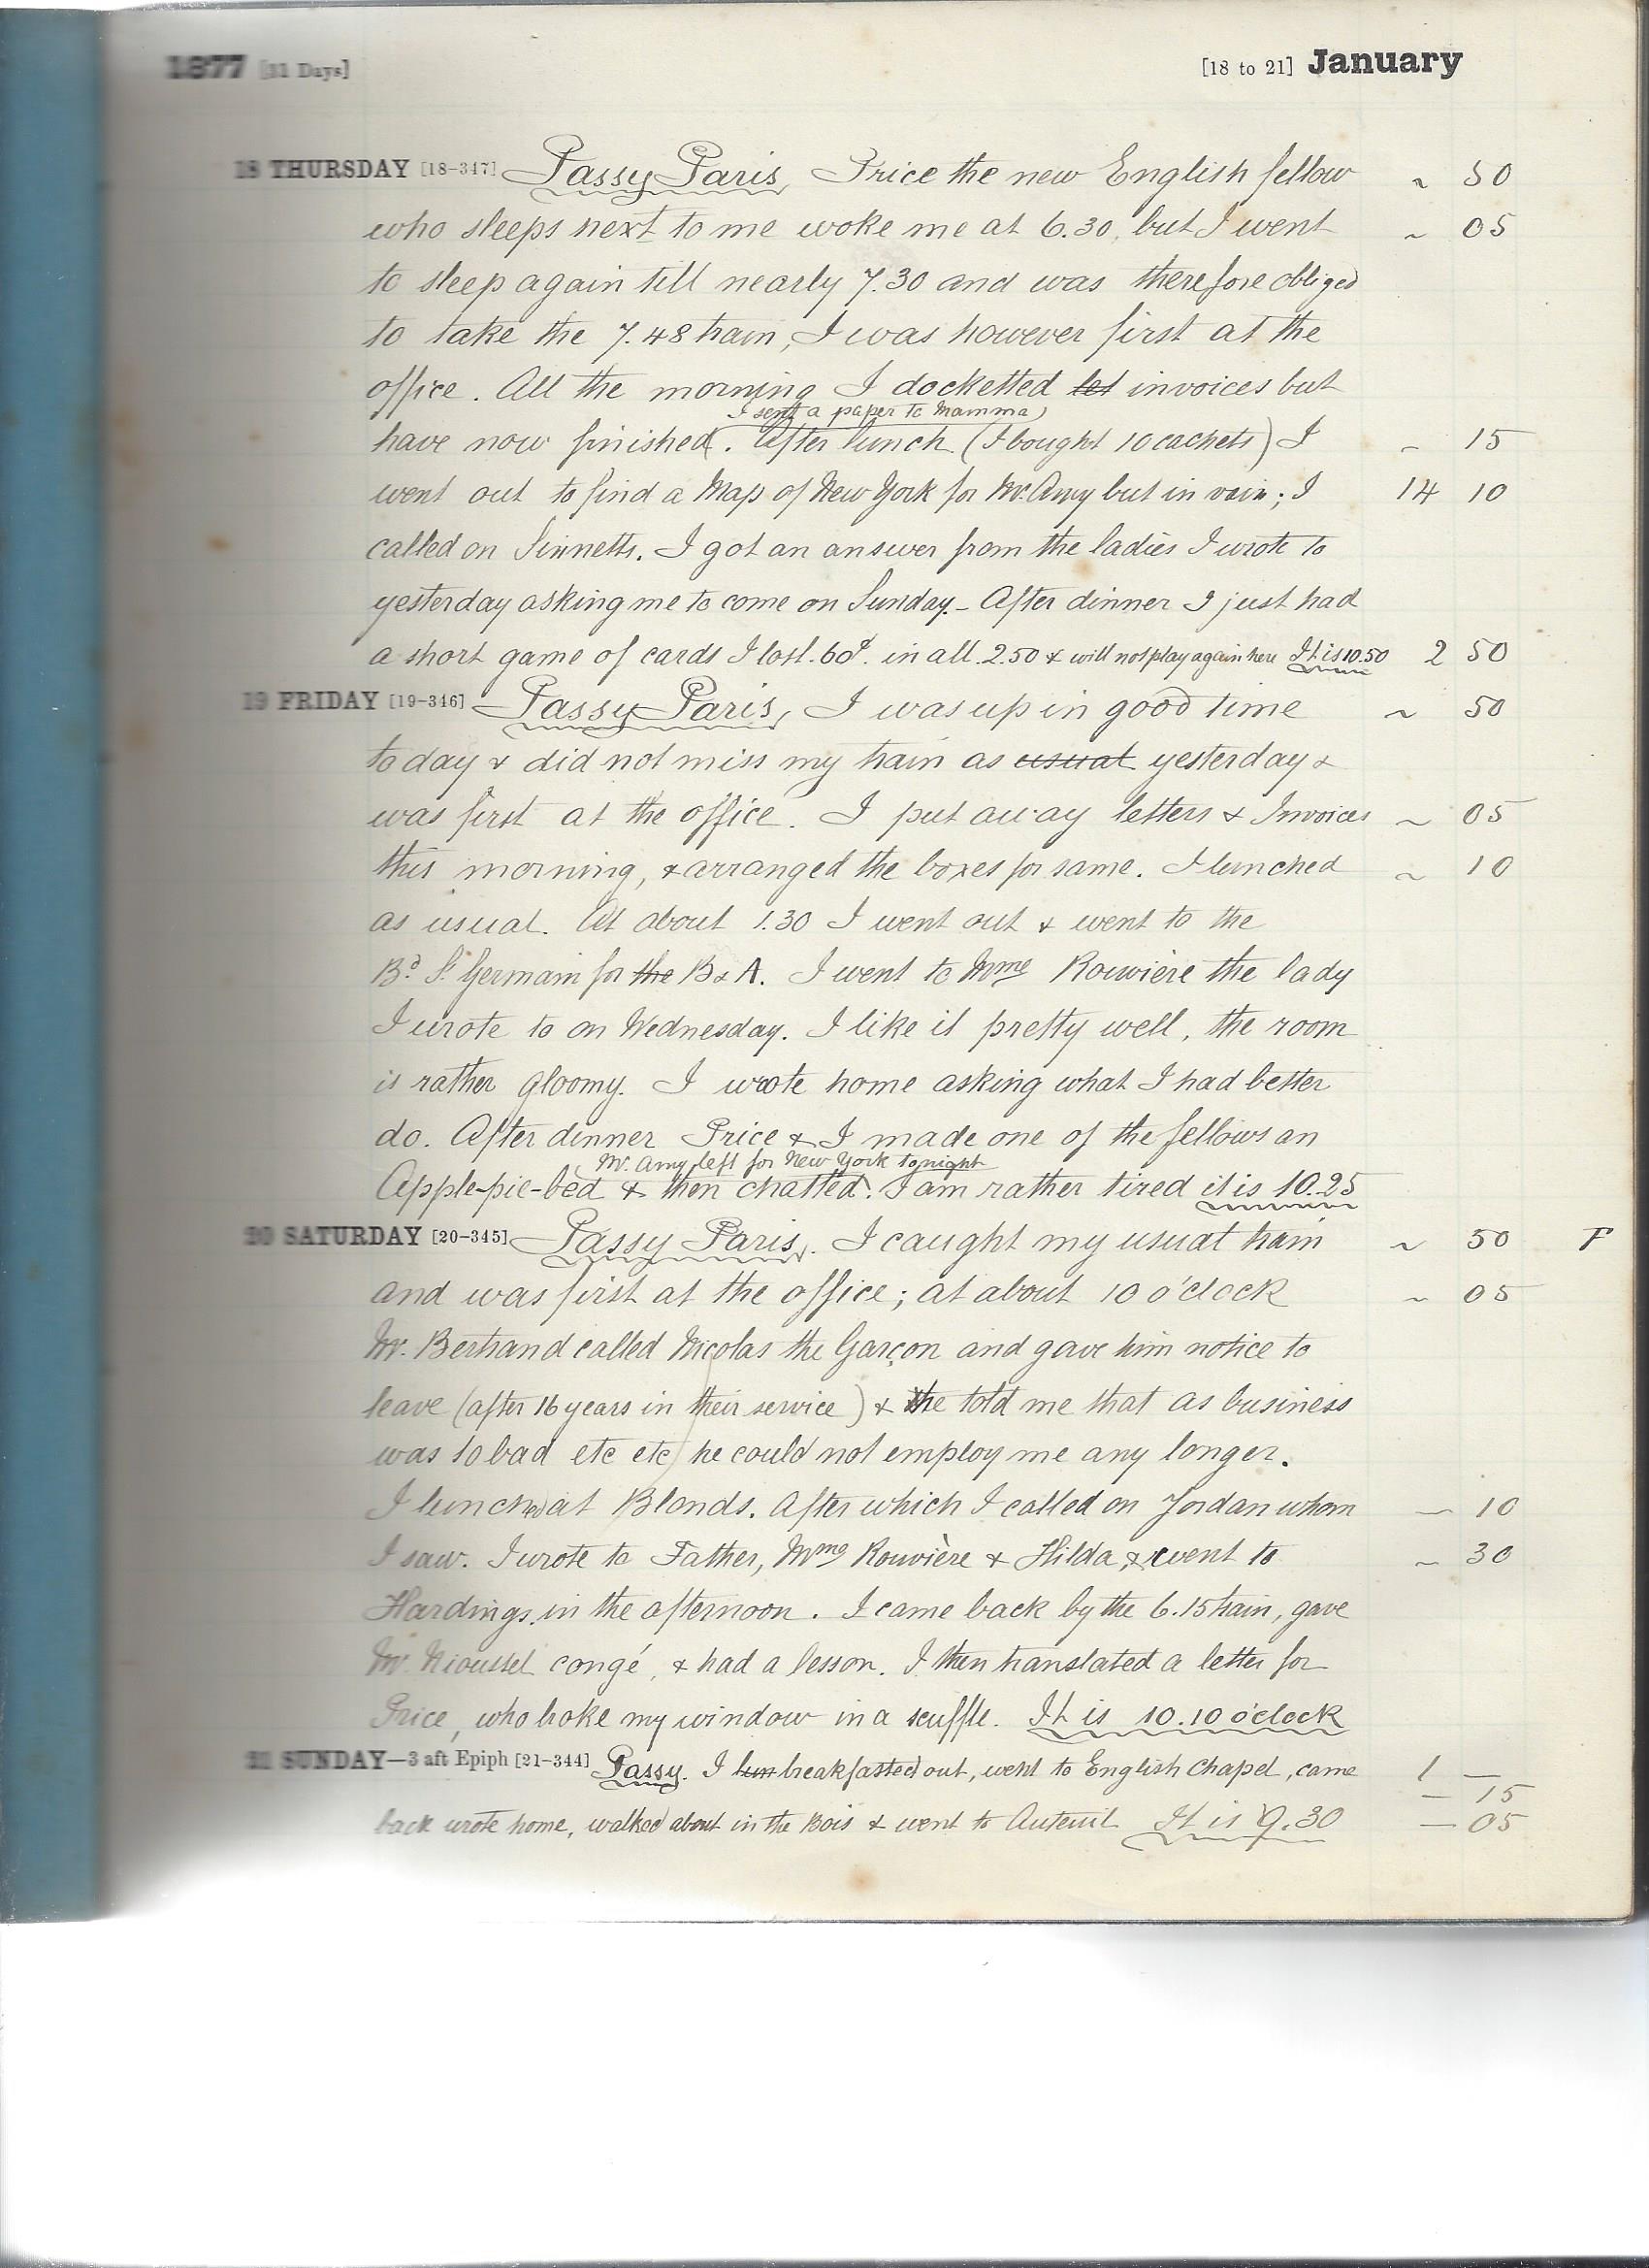 1877 [31 Days] [18 to 21] January
18 THURSDAY [18-347] Passy Paris, Price the new English fellow ~ 50
who sleeps next to me woke me at 6.30, but I went ~ 05
to sleep again till nearly 7.30 and was therefore obliged
to take the 7.48 train, I was however first at the
office. All the morning I docketted let invoices but
I sent a paper to Mamma
have now finished. After lunch (I bought 10 cachets) I - 15
went out to find a Map of New York for Mr. Amy but in vain; I 14 10
called on Sinnetts. I got an answer from the ladies I wrote to
yesterday asking me to come on Sunday.- After dinner I just had
a short game of cards I lost .60c. in all 2.50 & will not play again here It is 10.50 2 50
19 FRIDAY [19-346] Passy Paris, I was up in good time ~ 50
today & did not miss my train as usual yesterday &
was first at the office. I put away letters & Invoices ~ 05
this morning, & arranged the boxes for same. I lunched ~ 10
as usual. At about 1.30 I went out & went to the
Bd. St Germain for the B & A. I went to Mme Rouvière the lady
I wrote to on Wednesday. I like it pretty well, the room
is rather gloomy. I wrote home asking what I had better
do. After dinner Price & I made one of the fellows an
Mr. Amy left for New York tonight
Apple-pie-bed & then chatted. I am rather tired it is 10.25
20 SATURDAY [20-345] Passy Paris. I caught my usual train ~ 50 F
and was first at the office; at about 10 o'clock ~ 05
Mr. Bertrand called Nicolas the Garçon and gave him notice to
leave (after 16 years in their service) & he told me that as business
was so bad etc etc he could not employ me any longer.
I lunched at Blonds. After which I called on Jordan whom — 10
I saw. I wrote to Father, Mme Rouvière & Hilda, & went to ~ 30
Hardings, in the afternoon. I came back by the 6.15 train, gave
Mr. congé, & had a lesson. I then translated a letter for
Price, who broke my window in a scuffle. It is 10.10 o'clock
21 SUNDAY—3 aft Epiph [21-344] Passy. I lun breakfasted out, went to English Chapel, came 1 —
— 15
back wrote home, walked about in the Bois & went to Auteuil It is 9.30 — 05